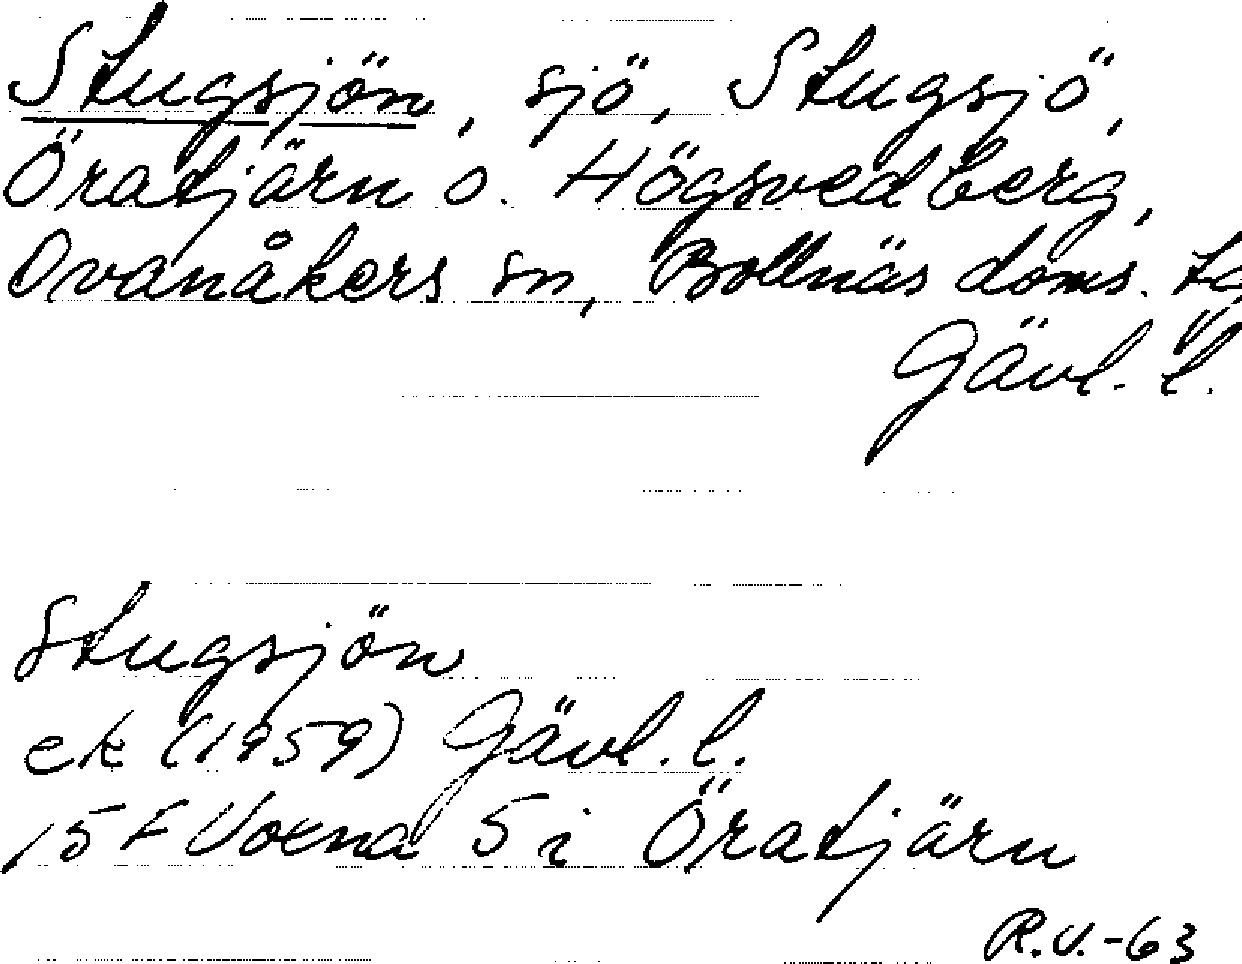 Stugsjön, sjö, Stugsjö,
Öratjärn o. Högsvedberg,
Ovanåkers sn, Bollnäs doms. tg
Gävl. l.
Stugsjön
ek (1959) Gävl. l.
15 F Voxna 5 i Öratjärn
R.V.-63